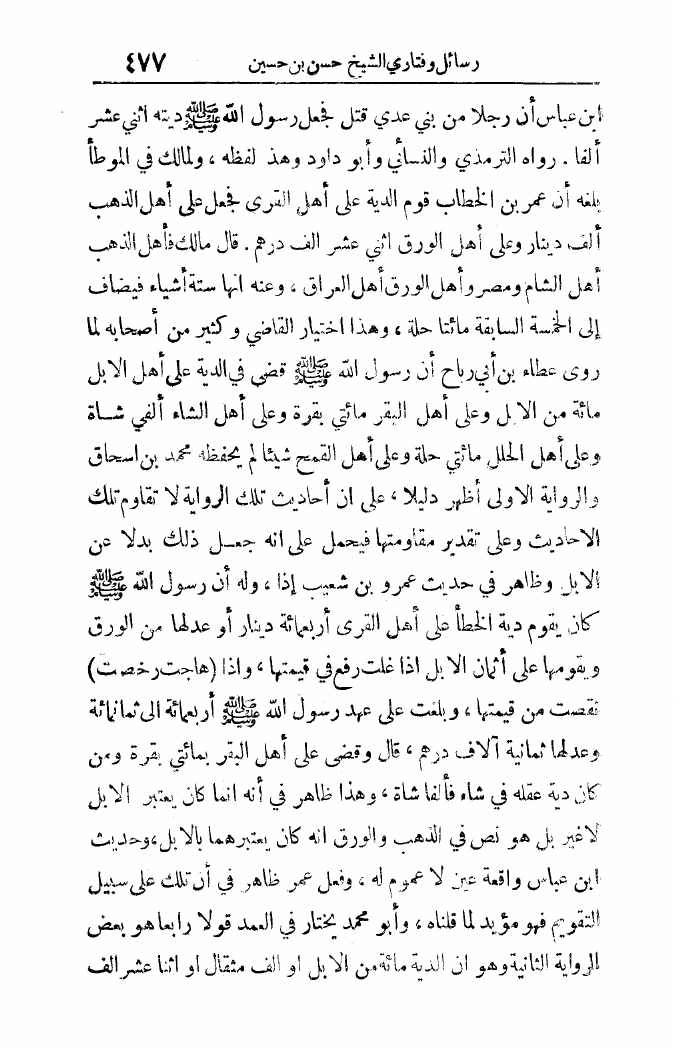 رسائل وفتاوي الشيخ حسن بن حسين ٤٧٧
ابن عباس أن رجلا من بني عدي قتل فجعل رسول الله ﷺ ديته اثني عشر
ألفا . رواه الترمذي والنسأئي وأبو داود وهذ لفظه ، ولمالك في الموطأ
بلغه أن عمر بن الخطاب قوم الدية على أهل القرى فجعل على أهل الذهب
ألف دينار وعلى أهل الورق اثني عشر الف درهم . قال مالك فأهل الذهب
أهل الشام ومصر وأهل الورق أهل العراق ، وعنه انها ستة أشياء فيضاف
إلى الخمسة السابقة مائتا حلة ، وهذا اختيار القاضي وكثير من أصحابه لما
روى عطاء بن أبي رباح أن رسول الله ﷺ قضى في الدية على أهل الابل
مائة من الابل وعلى أهل البقر مائتي بقرة وعلى أهل الشاء ألفي شاة
وعلى أهل الحلل مائتي حلة وعلى أهل القمح شيئا لم يحفظه محمد بن اسحاق
والرواية الاولى أظهر دليلا ، على ان أحاديث تلك الرواية لا تقاوم تلك
الاحاديث وعلى تقدير مقاومتها فيحمل على انه جعل ذلك بدلا عن
الابل وظاهر في حديث عمرو بن شعيب إذا ، وله أن رسول الله ﷺ
كان يقوم دية الخطأ على أهل القرى أربعمائة دينار أو عدلها من الورق
ويقومها على أثمان الابل اذا غلت رفع في قيمتها ، واذا (هاجت رخصت)
نقصت من قيمتها ، وبلغت على عهد رسول الله ﷺ أربعمائة الى ثمانمائة
وعدلها ثمانية آلاف درهم ، قال وقضى على أهل البقر بمائتي بقرة ومن
كان دية عقله في شاء فألفا شاة ، وهذا ظاهر في أنه انما كان يعتبر الابل
لا غير بل هو نص في الذهب والورق انه كان يعتبرهما بالابل، وحديث
ابن عباس واقعة عين لا عموم له ، وفعل عمر ظاهر في أن تلك على سبيل
التقويم فهو مؤيد لما قلناه ، وأبو محمد يختار في العمد قولا رابعا هو بعض
الرواية الثانية وهو ان الدية مائة من الابل او الف مثقال او اثنا عشر الف